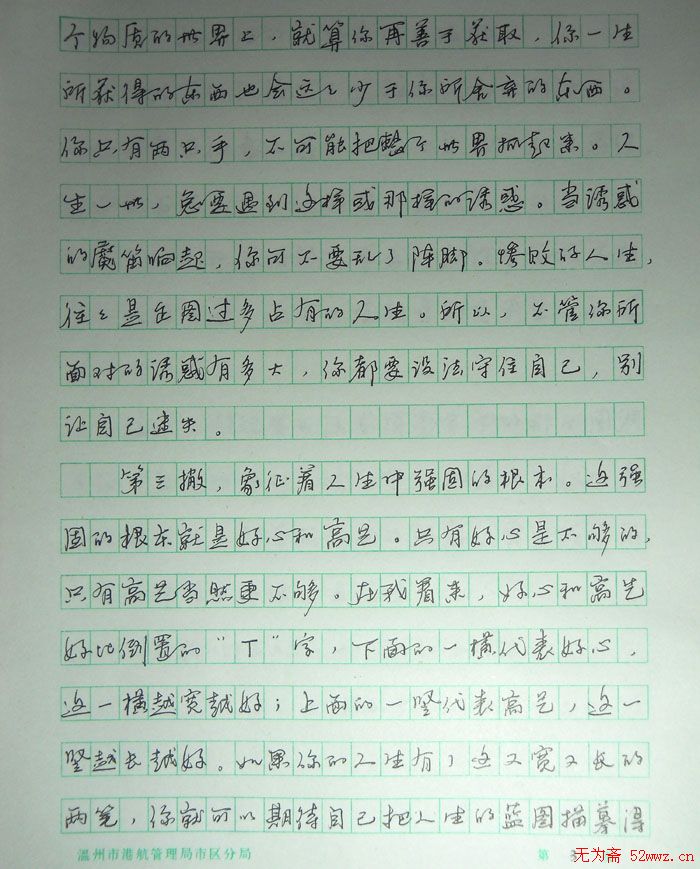 个物质的世界上，就算你再善于获取，你一生
所获得的东西也会远远少于你所舍弃的东西。
你只有两只手，不可能把整个世界抓起来。人
生一世，总要遇到这样或那样的诱惑。当诱惑
的魔笛响起，你可不要乱了阵脚。惨败的人生，
往往是企图过多占有的人生。所以，不管你所
面对的诱惑有多大，你都要设法守住自己，别
让自己迷失。
第三撇，象征着人生中强固的根本。这强
固的根本就是好心和高见。只有好心是不够的，
只有高见当然更不够。在我看来，好心和高见
好比倒置的“丁”字，下面的一横代表好心，
这一横越宽越好；上面的一竖代表高见，这一
竖越长越好。如果你的人生有了这又宽又长的
两笔，你就可以期待自己把人生的蓝图描摹得
温州市港航管理局市区分局 第
无为斋 52wwz.cn